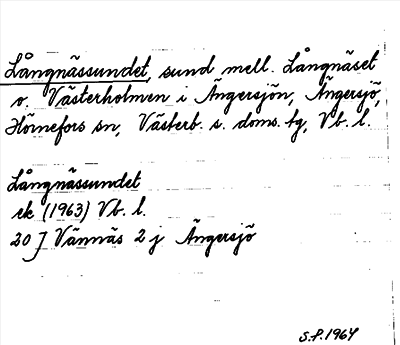 Långnässundet, sund mell. Långnäset
o. Västerholmen i Ängersjön, Ängersjö,
Hörnefors sn, Västerb. s. doms. tg, Vb. l.
Långnässundet
ek (1963) Vb. l.
20 J Vännäs 2 j Ängersjö
S.P. 1964